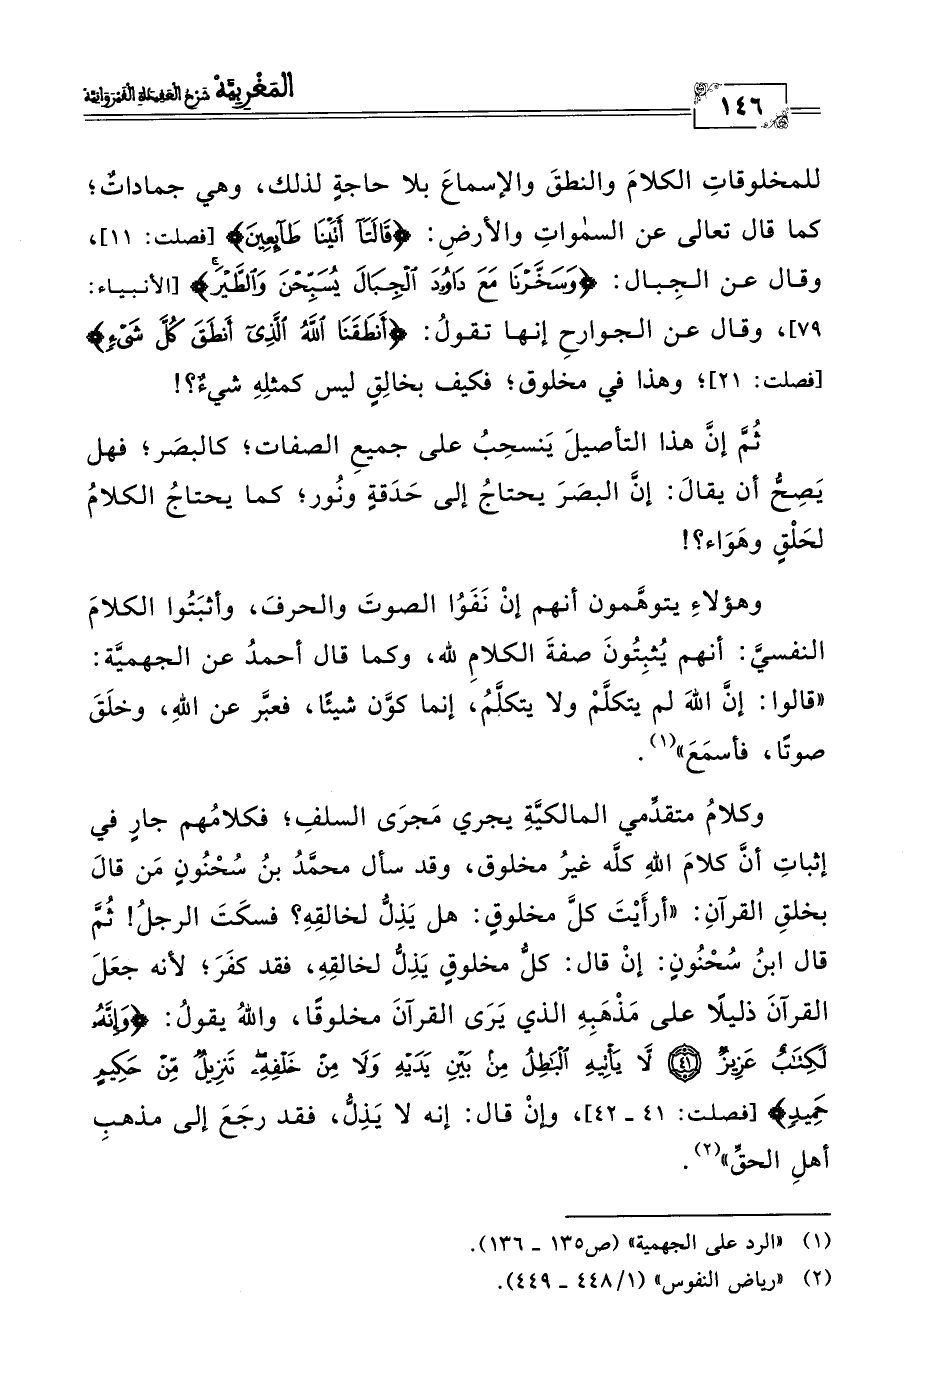 المَغْرِبيَّة شَرْحُ العَقِيدَةِ القَيْرَوَانِيَّة
١٤٦
للمخلوقاتِ الكلامَ والنطقَ والإسماعَ بلا حاجةٍ لذلك، وهي جماداتٌ؛
كما قال تعالى عن السمٰواتِ والأرضِ: ﴿قَالَتَآ أَتَيْنَا طَآئِعِينَ﴾ [فصلت: ١١]،
وقال عن الجِبال: ﴿وَسَخَّرْنَا مَعَ دَاوُۥدَ ٱلْجِبَالَ يُسَبِّحْنَ وَٱلطَّيْرَ﴾ [الأنبياء:
٧٩]، وقال عن الجوارحِ إنها تقولُ: ﴿أَنطَقَنَا ٱللَّهُ ٱلَّذِىٓ أَنطَقَ كُلَّ شَىْءٍ﴾
[فصلت: ٢١]؛ وهذا في مخلوق؛ فكيف بخالِقٍ ليس كمثلِهِ شيءٌ؟!
ثُمَّ إنَّ هذا التأصيلَ يَنسحِبُ على جميعِ الصفات؛ كالبصَر؛ فهل
يَصِحُّ أن يقالَ: إنَّ البصَرَ يحتاجُ إلى حَدَقةٍ ونُور؛ كما يحتاجُ الكلامُ
لحَلْقٍ وهَوَاء؟!
وهؤلاءِ يتوهَّمون أنهم إنْ نَفَوُا الصوتَ والحرفَ، وأثبَتُوا الكلامَ
النفسيَّ: أنهم يُثبِتُونَ صفةَ الكلامِ لله، وكما قال أحمدُ عن الجهميَّة:
«قالوا: إنَّ اللهَ لم يتكلَّمْ ولا يتكلَّمُ، إنما كوَّن شيئًا، فعبَّر عن اللهِ، وخلَقَ
صوتًا، فأسمَعَ»(١).
وكلامُ متقدِّمي المالكيَّةِ يجري مَجرَى السلفِ؛ فكلامُهم جارٍ في
إثباتِ أنَّ كلامَ اللهِ كلَّه غيرُ مخلوق، وقد سأل محمَّدُ بنُ سُحْنُونٍ مَن قالَ
بخلقِ القرآنِ: «أرأَيْتَ كلَّ مخلوقٍ: هل يَذِلُّ لخالقِهِ؟ فسكَتَ الرجلُ! ثُمَّ
قال ابنُ سُحْنُونٍ: إنْ قال: كلُّ مخلوقٍ يَذِلُّ لخالقِهِ، فقد كفَرَ؛ لأنه جعَلَ
القرآنَ ذليلًا على مَذْهَبِهِ الذي يَرَى القرآنَ مخلوقًا، واللهُ يقولُ: ﴿وَإِنَّهُۥ
لَكِتَٰبٌ عَزِيزٌ ۝٤١ لَّا يَأْتِيهِ ٱلْبَٰطِلُ مِنۢ بَيْنِ يَدَيْهِ وَلَا مِنْ خَلْفِهِۦ تَنزِيلٌ مِّنْ حَكِيمٍ
حَمِيدٍ﴾ [فصلت: ٤١ ـ ٤٢]، وإنْ قال: إنه لا يَذِلُّ، فقد رجَعَ إلى مذهبِ
أهلِ الحقِّ»(٢).
(١) «الرد على الجهمية» (ص١٣٥ ـ ١٣٦).
(٢) «رياض النفوس» (١/ ٤٤٨ ـ ٤٤٩).